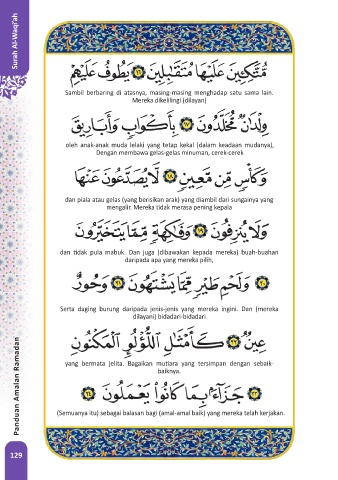 Surah Al-Waqi'ah
مُّتَّكِـِٔينَ عَلَيْهَا مُتَقَٰبِلِينَ ١٦ يَطُوفُ عَلَيْهِمْ
Sambil berbaring di atasnya, masing-masing menghadap satu sama lain.
Mereka dikelilingi (dilayan)
وِلْدَٰنٌ مُّخَلَّدُونَ ١٧ بِأَكْوَابٍ وَأَبَارِيقَ
oleh anak-anak muda lelaki yang tetap kekal (dalam keadaan mudanya),
Dengan membawa gelas-gelas minuman, cerek-cerek
وَكَأْسٍ مِّن مَّعِينٍ ١٨ لَّا يُصَدَّعُونَ عَنْهَا
dan piala atau gelas (yang berisikan arak) yang diambil dari sungainya yang
mengalir. Mereka tidak merasa pening kepala
وَلَا يُنزِفُونَ ١٩ وَفَٰكِهَةٍ مِّمَّا يَتَخَيَّرُونَ
dan tidak pula mabuk. Dan juga (dibawakan kepada mereka) buah-buahan
daripada apa yang mereka pilih,
٢٠ وَلَحْمِ طَيْرٍ مِّمَّا يَشْتَهُونَ ٢١ وَحُورٌ
Serta daging burung daripada jenis-jenis yang mereka ingini. Dan (mereka
dilayani) bidadari-bidadari
عِينٌ ٢٢ كَأَمْثَٰلِ ٱللُّؤْلُؤِ ٱلْمَكْنُونِ
yang bermata jelita. Bagaikan mutiara yang tersimpan dengan sebaik-
baiknya.
٢٣ جَزَآءًۢ بِمَا كَانُوا۟ يَعْمَلُونَ ٢٤
(Semuanya itu) sebagai balasan bagi (amal-amal baik) yang mereka telah kerjakan.
Panduan Amalan Ramadan
129